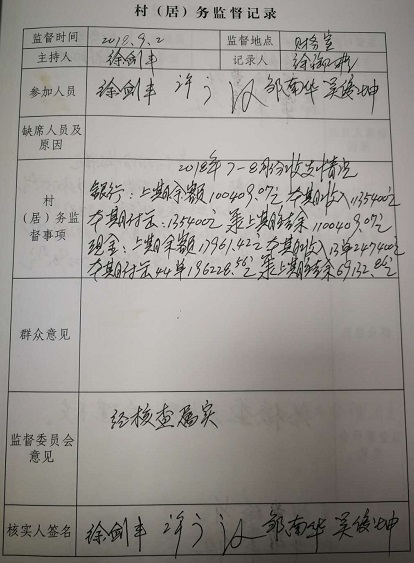 村（居）务监督记录
监督时间 2018.9.2 监督地点 财务室
主持人 徐剑丰 记录人 徐
参加人员 徐剑丰 许 邹南华 吴俊坤
缺席人员及
原因
2018年7-8月份收支情况
银行：上期余额100409.07元 本期收入1135400元
村
（居）务监
督事项
本期付出：135400元 累上期结余1100409.07元
现金：上期余额17961.42元 本期收入13单247400元
本期付出44单196228.56元 累上期结余69132.86元
群众意见
经核查属实
监督委员会
意见
核实人签名 徐剑丰 许 邹南华 吴俊坤